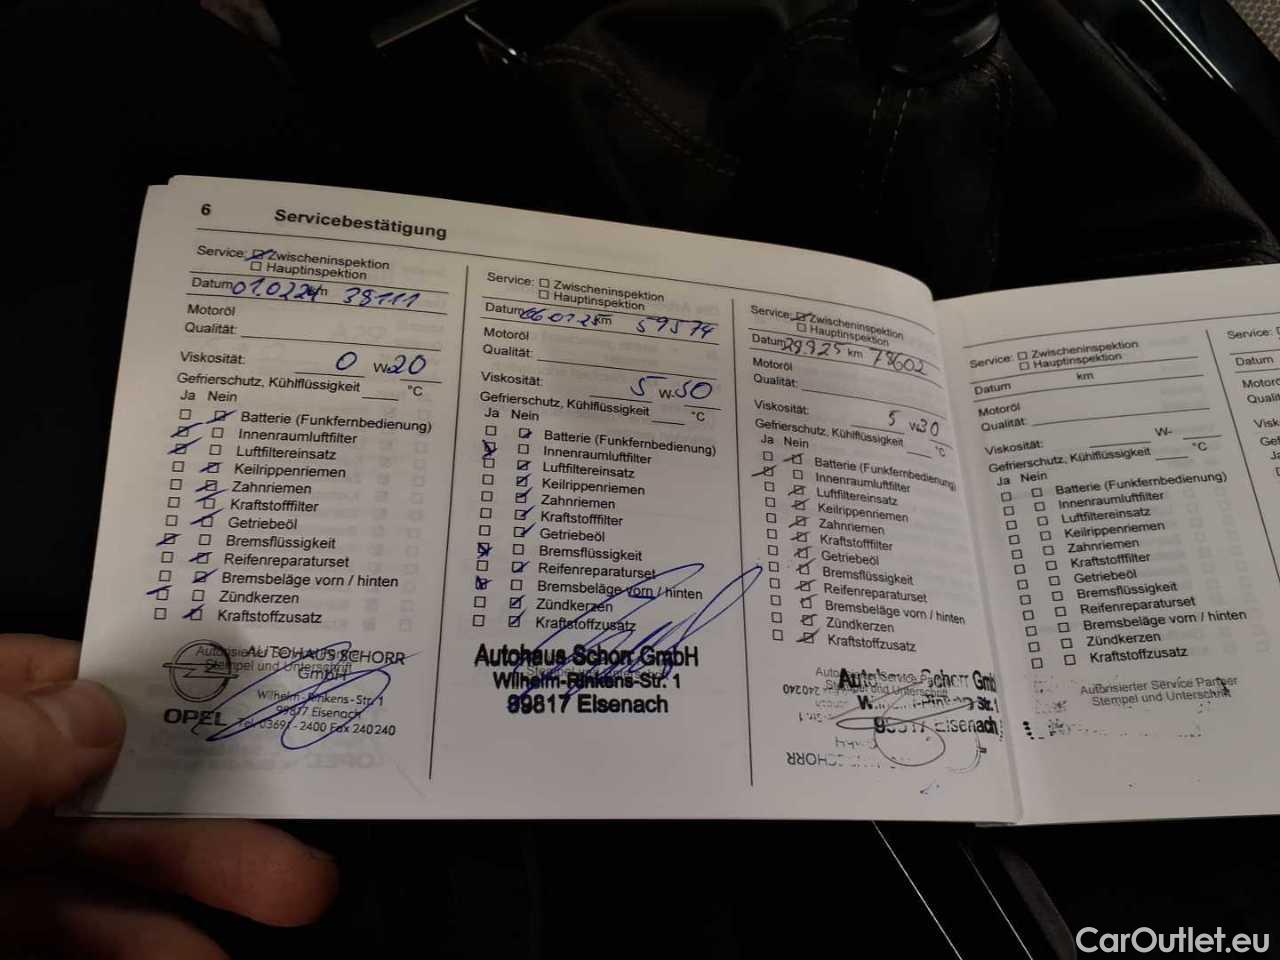 6 Servicebestätigung
Service: Zwischeninspektion
Hauptinspektion
Datum 01.02.24 km 38111
Motoröl
Qualität:
Viskosität: 0 W-20
Gefrierschutz, Kühlflüssigkeit °C
Ja Nein
Batterie (Funkfernbedienung)
Innenraumluftfilter
Luftfiltereinsatz
Keilrippenriemen
Zahnriemen
Kraftstofffilter
Getriebeöl
Bremsflüssigkeit
Reifenreparaturset
Bremsbeläge vorn / hinten
Zündkerzen
Kraftstoffzusatz
Autorisierter Service Partner
Stempel und Unterschrift
AUTOHAUS SCHORR
GmbH
Wilhelm-Rinkens-Str. 1
99817 Eisenach
Tel. 03691 - 2400 Fax 240240
OPEL
Service: Zwischeninspektion
Hauptinspektion
Datum 06.01.25 km 59574
Motoröl
Qualität:
Viskosität: 5 W-30
Gefrierschutz, Kühlflüssigkeit °C
Ja Nein
Batterie (Funkfernbedienung)
Innenraumluftfilter
Luftfiltereinsatz
Keilrippenriemen
Zahnriemen
Kraftstofffilter
Getriebeöl
Bremsflüssigkeit
Reifenreparaturset
Bremsbeläge vorn / hinten
Zündkerzen
Kraftstoffzusatz
Autohaus Schorr GmbH
Stempel und Unterschrift
Wilhelm-Rinkens-Str. 1
99817 Eisenach
Service: Zwischeninspektion
Hauptinspektion
Datum 29.9.25 km 78602
Motoröl
Qualität:
Viskosität: 5 W-30
Gefrierschutz, Kühlflüssigkeit °C
Ja Nein
Batterie (Funkfernbedienung)
Innenraumluftfilter
Luftfiltereinsatz
Keilrippenriemen
Zahnriemen
Kraftstofffilter
Getriebeöl
Bremsflüssigkeit
Reifenreparaturset
Bremsbeläge vorn / hinten
Zündkerzen
Kraftstoffzusatz
Autohaus Schorr GmbH
Stempel und Unterschrift
Str. 1
99817 Eisenach
Service: Zwischeninspektion
Hauptinspektion
Datum km
Motoröl
Qualität:
Viskosität: W-
Gefrierschutz, Kühlflüssigkeit °C
Ja Nein
Batterie (Funkfernbedienung)
Innenraumluftfilter
Luftfiltereinsatz
Keilrippenriemen
Zahnriemen
Kraftstofffilter
Getriebeöl
Bremsflüssigkeit
Reifenreparaturset
Bremsbeläge vorn / hinten
Zündkerzen
Kraftstoffzusatz
Autorisierter Service Partner
Stempel und Unterschrift
Service:
Datum
CarOutlet.eu